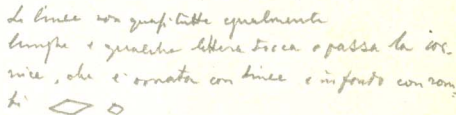 Le linee son quasi tutte egualmente
lunghe e qualche lettera tocca o passa la cor-
nice, che è ornata con linee e in fondo con rom-
bi